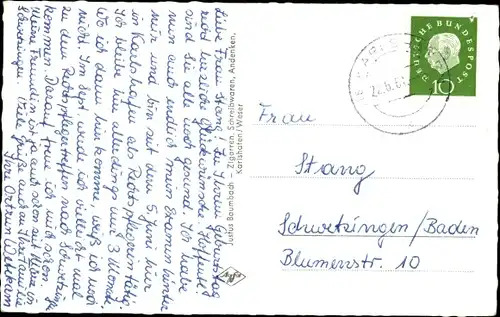 Liebe Frau Stang! Zu Ihrem Geburtstag
recht herzliche Glückwünsche. Hoffentl.
sind Sie alle noch gesund. Ich habe
nun auch endlich mein Examen hinter
mir und bin seit dem 5. Juni hier
in Karlshafen als Rechtspflegerin tätig.
Ich bleibe hier allerdings nur 3 Monate.
Wo ich dann hinkomme, weiß ich noch
nicht. Im Sept. werde ich vielleicht mal
zu dem Rechtspflegertreffen nach Schwetzingen
kommen. Darauf freue ich mich schon.
Meine Freundin ist ja auch schon seit
Schwetzingen. Viele Grüße auch an Ihre Familie
Ihre Ortrun
Justus Baumbach - Zigarren, Schreibwaren, Andenken,
Karlshafen/Weser
DEUTSCHE BUNDESPOST
10
Frau
Stang
Schwetzingen/Baden
Blumenstr. 10